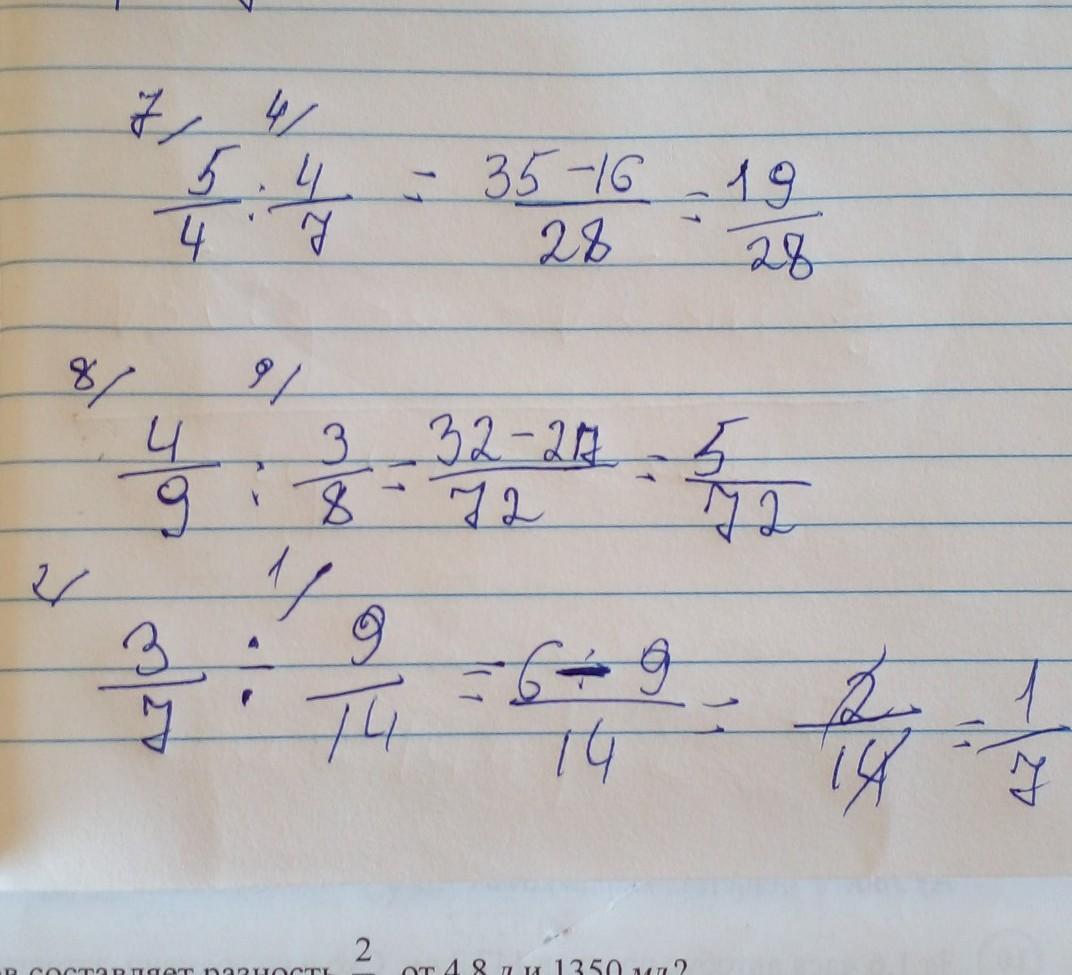 7/ 4/
5/4 : 4/7 = 35-16/28 = 19/28
8/ 9/
4/9 : 3/8 = 32-27/72 = 5/72
2/ 1/
3/7 ÷ 9/14 = 6÷9/14 = 2/14 = 1/7
составляет разность 2 от 4,8 л и 1350 мл?